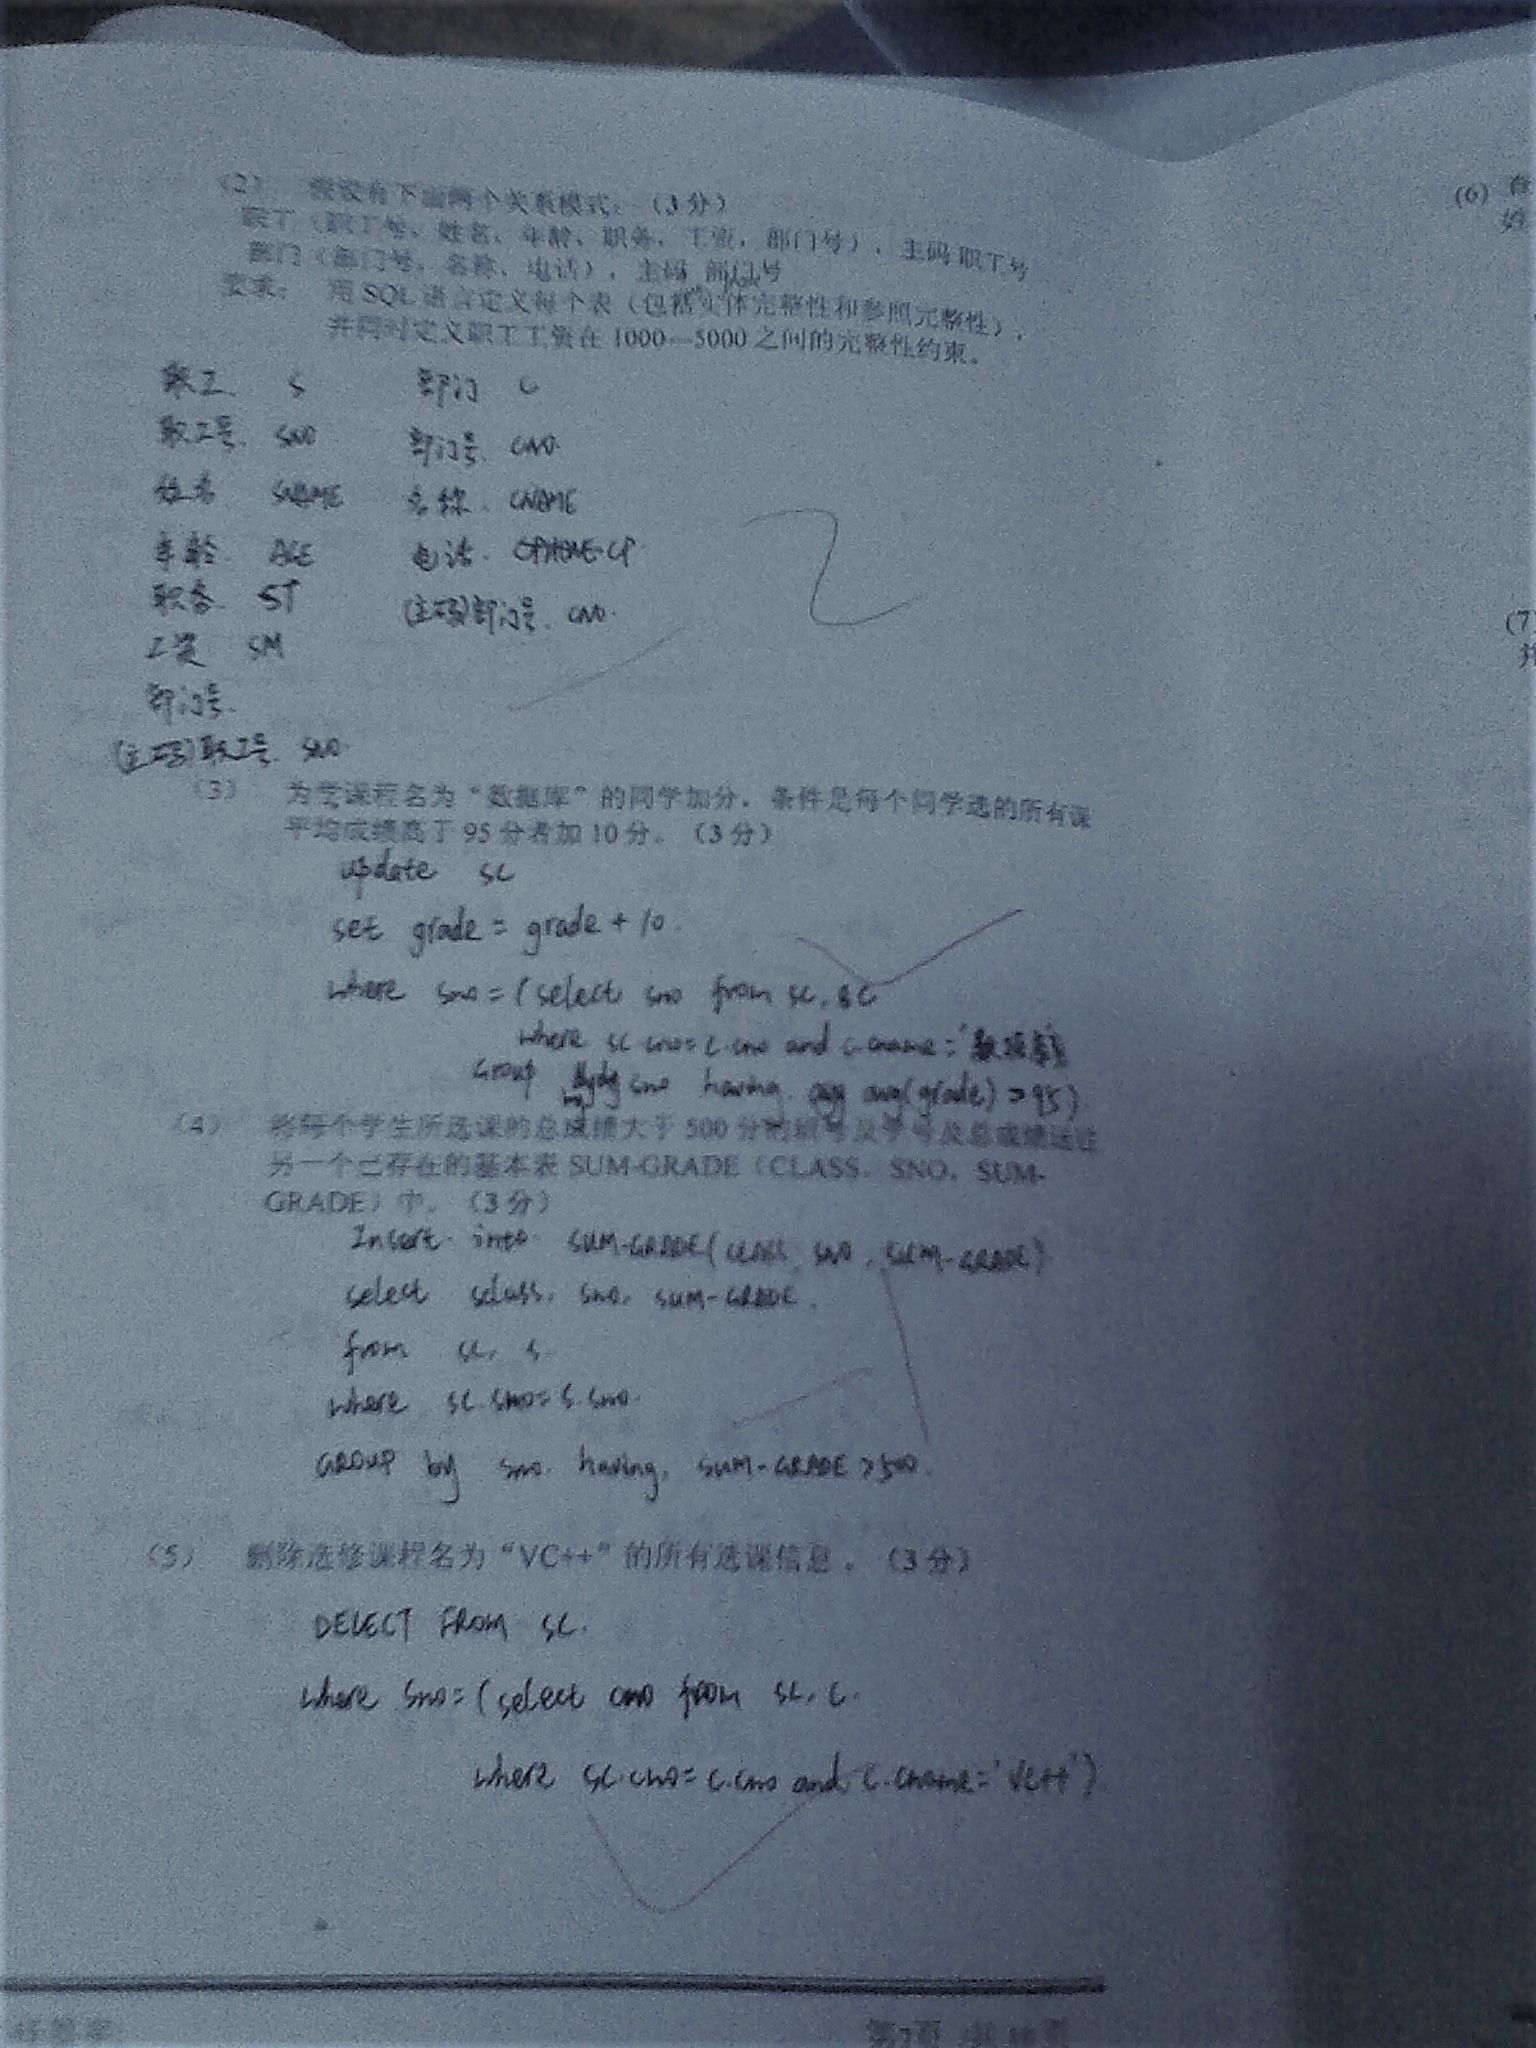 (2) 假设有下面两个关系模式：（3分）
职工（职工号，姓名，年龄，职务，工资，部门号），主码 职工号
部门（部门号，名称，电话），主码 部门号
要求： 用 SQL 语言定义每个表（包括实体完整性和参照完整性），
并同时定义职工工资在 1000—5000 之间的完整性约束。
职工 S 部门 C
职工号 SNO 部门号 CNO
姓名 SNAME 名称 CNAME
年龄 AGE 电话 CP
职务 ST (主码)部门号 CNO
工资 SM
部门号
(主码)职工号 SNO
(3) 为学课程名为“数据库”的同学加分，条件是每个同学选的所有课
平均成绩高于 95 分者加 10 分。（3 分）
update sc
set grade = grade + 10
where sno = (select sno from sc, c
where sc.cno = c.cno and c.cname = '数据库'
Group by sno having avg(grade) > 95)
(4) 将每个学生所选课的总成绩大于 500 分的班号及学号及总成绩送往
另一个已存在的基本表 SUM-GRADE（CLASS，SNO，SUM-
GRADE）中。（3 分）
Insert into SUM-GRADE(CLASS, SNO, SUM-GRADE)
select sclass, sno, SUM-GRADE
from sc, s
where sc.sno = s.sno
GROUP by sno having SUM-GRADE > 500
(5) 删除选修课程名为“VC++”的所有选课信息。（3 分）
DELECT FROM SC
where sno = (select cno from sc, c
where sc.cno = c.cno and c.cname = 'VC++')
(6) 在
姓
(7)
并